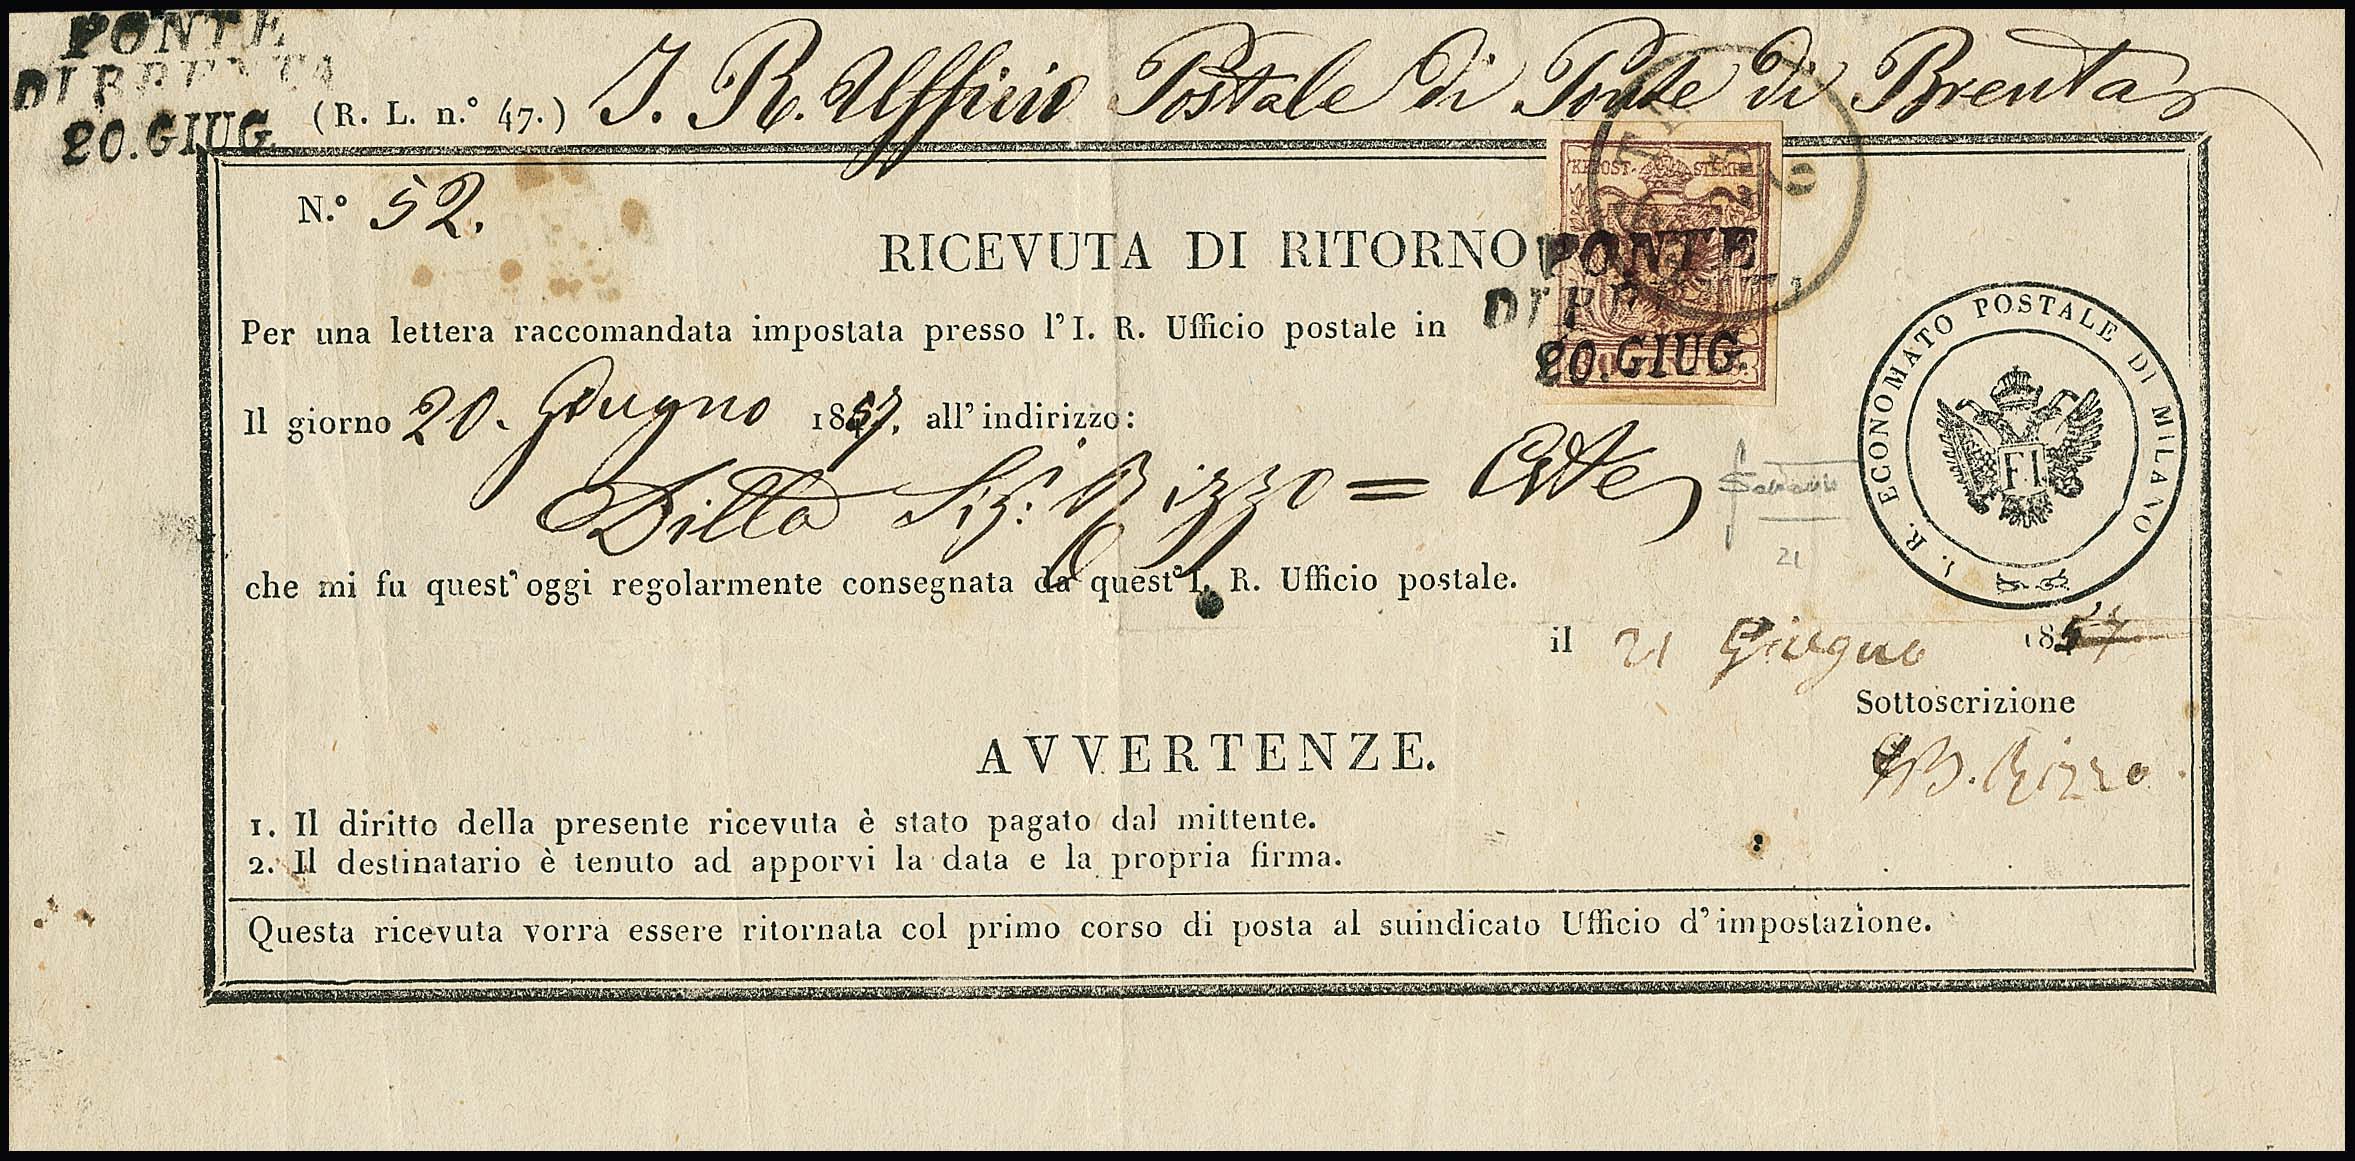 PONTE
DI BRENTA
20.GIUG
(R. L. n.° 47.) I. R. Ufficio Postale di Ponte di Brenta
N.° 52.
KK POST-STEMPEL
RICEVUTA DI RITORNO
PONTE
DI BRENTA
20.GIUG.
Per una lettera raccomandata impostata presso l'I. R. Ufficio postale in
Il giorno 20. Giugno 1857. all'indirizzo:
Ditta Rizzo = Este
I. R. ECONOMATO POSTALE DI MILANO
F.I.
21
che mi fu quest'oggi regolarmente consegnata da quest'I. R. Ufficio postale.
il 21 Giugno 1857
Sottoscrizione
GB. Rizzo
AVVERTENZE.
1. Il diritto della presente ricevuta è stato pagato dal mittente.
2. Il destinatario è tenuto ad apporvi la data e la propria firma.
Questa ricevuta vorrà essere ritornata col primo corso di posta al suindicato Ufficio d'impostazione.